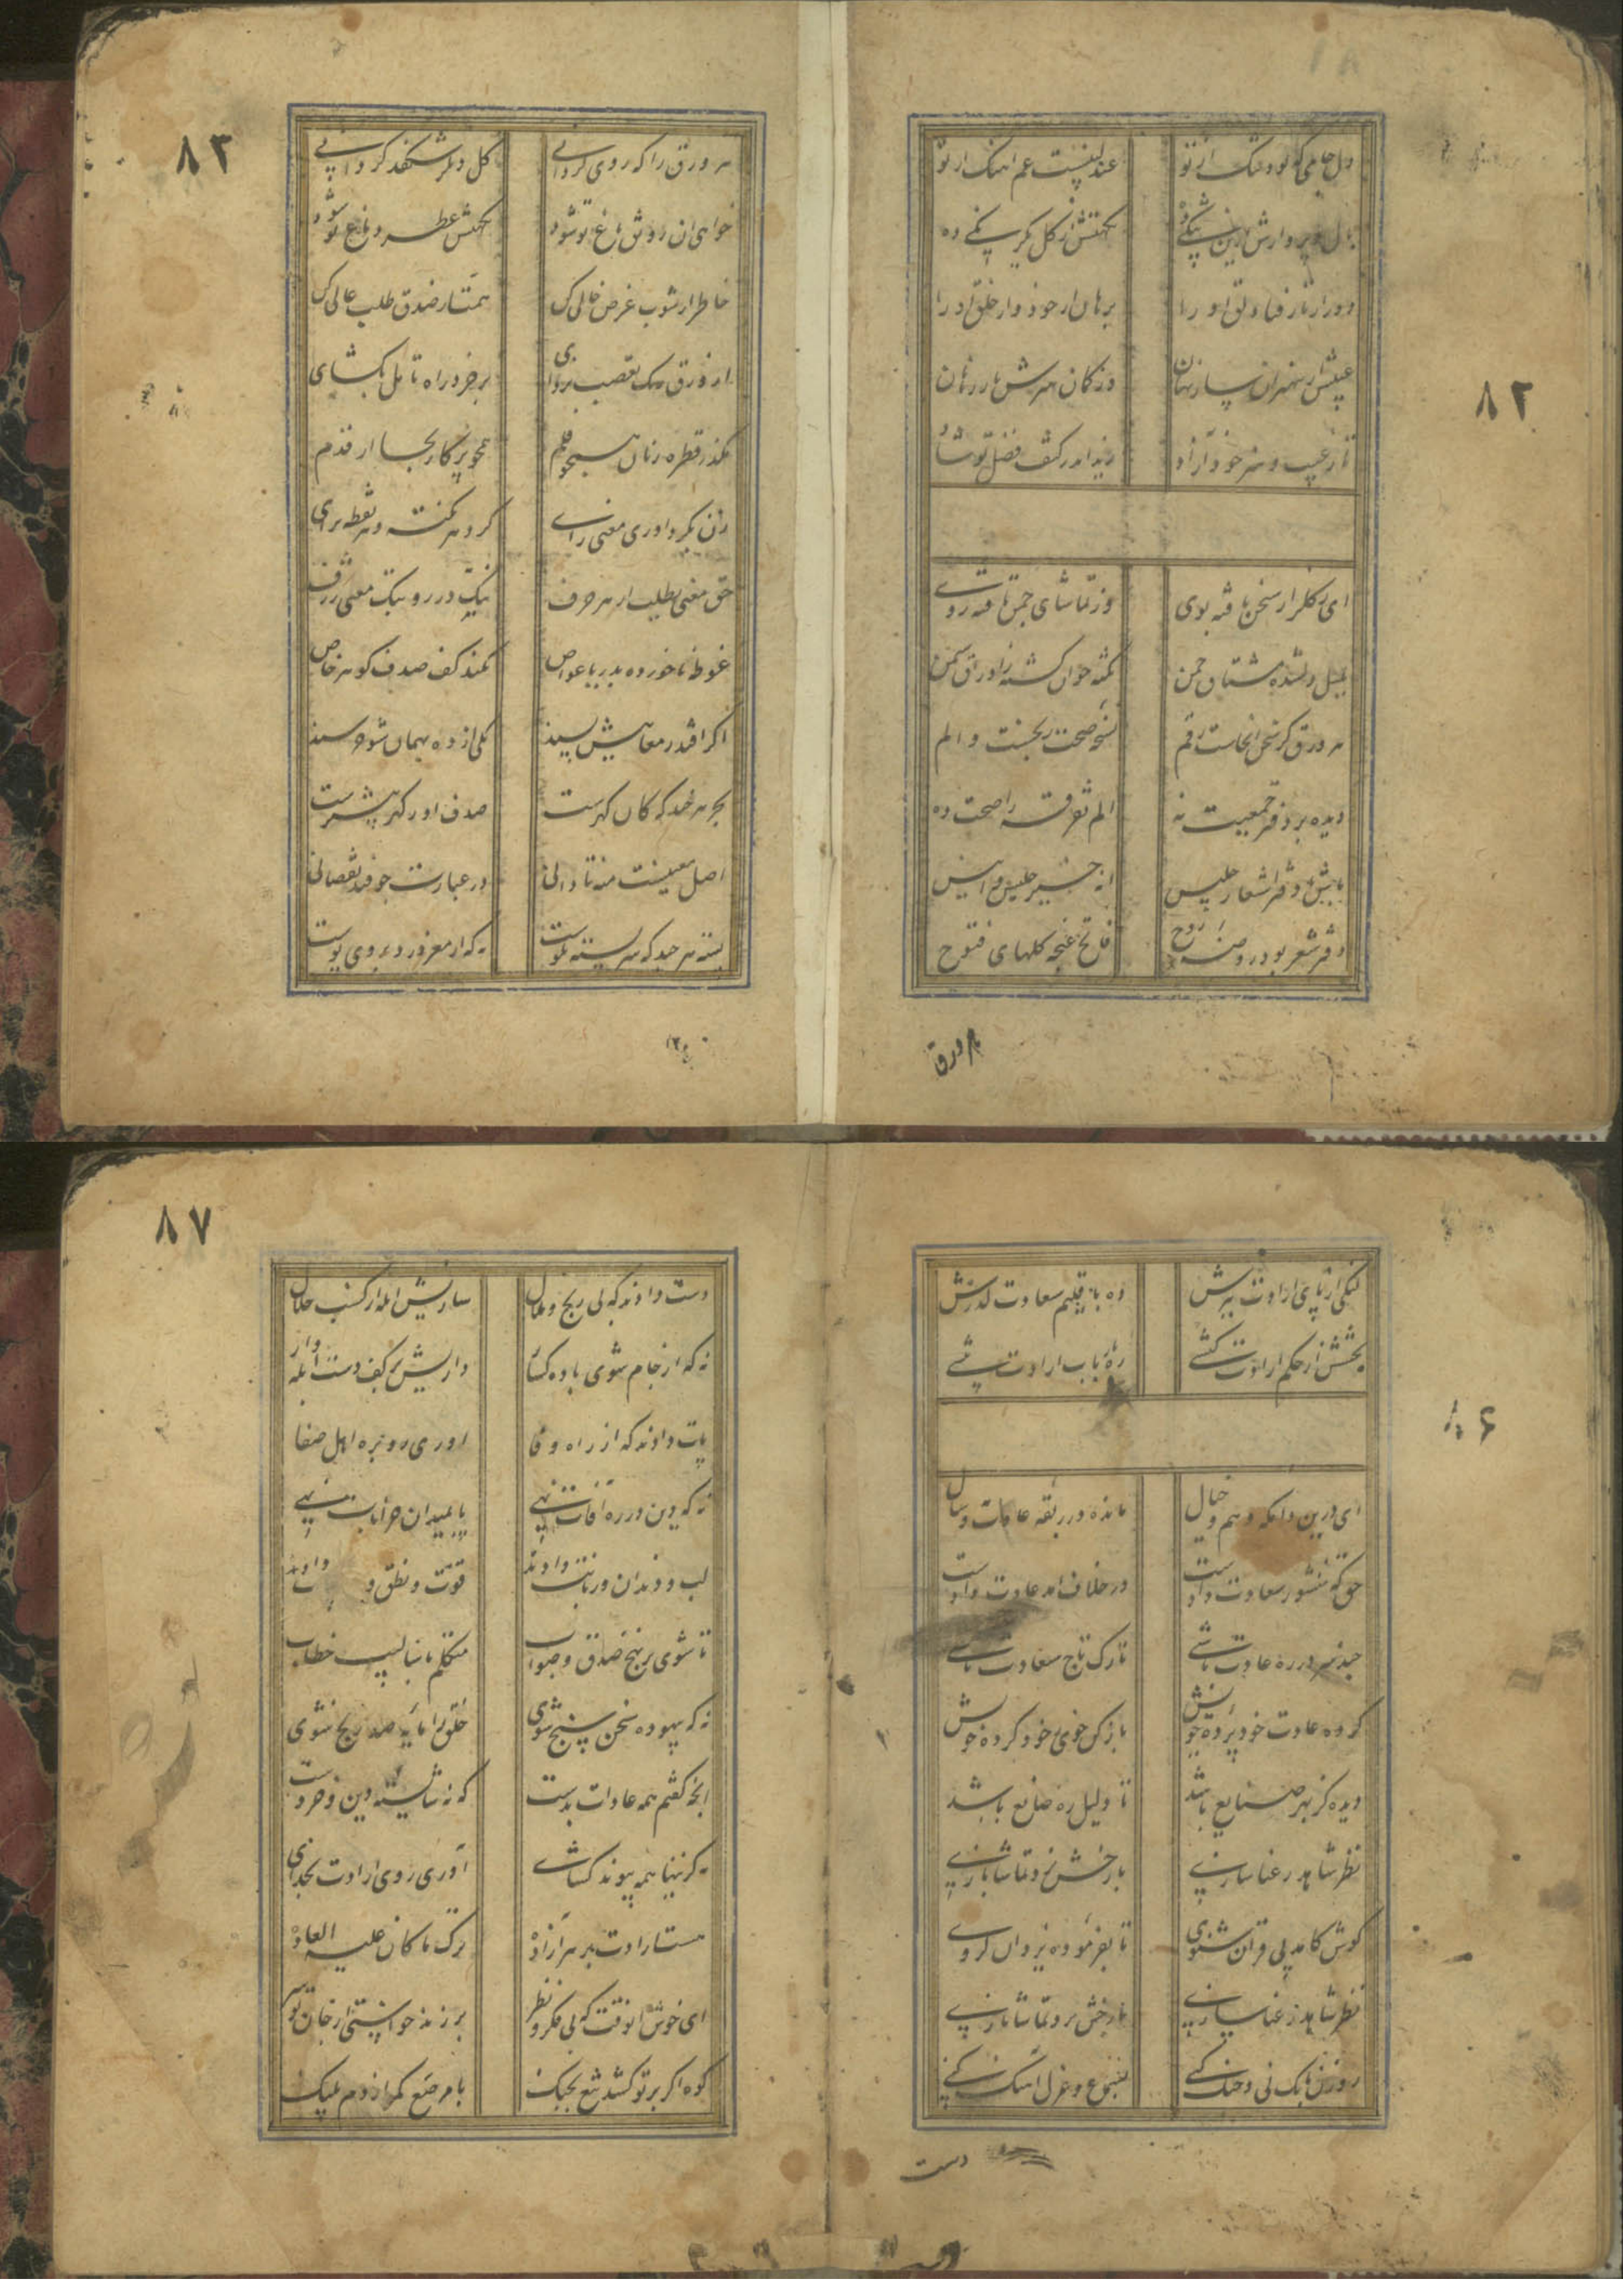 ۸۲
دل جامی که بود تنک از تو عندلیبیست غم اهنک از تو
بال و پر وارش ازین نکهتش از کل یکرنکی ده
دور از اثار فنا دلق او را برهان از خود و از خلق او را
عیبش از بی هنران ساز نهان وز کمان هنرش باز رهان
تا ز عیب و هنر خود آزاد زید اندر کنف فضل تو شاد
ای ز کلزار سخن یافته بوی وز تماشای چمن تافته روی
بلبل دلشده مشتاق چمن نکته خوان کشته ز اوراق سمن
هر ورق کز سخن انجاست رقم نسخه صحت رنجست و الم
دیده بر دفتر جمعیت نه الم تفرقه را صحت ده
باش با دفتر اشعار جلیس انه خیر جلیس و انیس
دفتر شعر بود روضه روح فاتح غنچه کلهای فتوح
هر ورق
۸۳
هر ورق را که روی کردانی کل دیکر شکفد کر دانی
خواهی ان رونق باغ تو شود نکهتش عطر دماغ تو شود
خاطر از شوب غرض خالی کن همت از صدق طلب عالی کن
از ورق سبک تعصب بزدای بر خرد راه تامل بکشای
مکذر قطره زنان همچو قلم همچو پرکار بجا ار قدم
زن بکرد اوری معنی رای کرد هر نکته و هر نقطه برای
حق معنی بطلب از هر حرف نیک در رو بتک معنی ژرف
غوطه ناخورده بدریا غواص نکند کف صدف کوهر خاص
اکر افتد ز معانیش پسند یکی از ده بهمان شو خرسند
بحر هر چند که کان کهرست صدف او ز کهر بیشترست
اصل معنیست منه تا دانی در عبارت چو فتد نقصانی
پسته هر چند که سربسته نکوست نه که از مغز در و بر روی پوست
۸۶
لنکی از پای ارادت ببرش ده باقلیم سعادت کذرش
بخشش از حکم ارادت کششی ره ارباب ارادت منشی
ای درین دامکه وهم و خیال مانده در ربقه عادات و سال
حق که منشور سعادت دادست در خلاف امد عادت دادست
چند سر در ره عادت باشی تارک تاج سعادت باشی
کرده عادت خود پرده خویش باز کن خوی ز خود کرده خویش
دیده کز بهر صنایع باشد تا دلیل ره صانع باشد
نظر شاهد رعنا سازی با رخش نرد تماشا بازی
کوش کامد پی قران شنوی تا بفرموده یزدان کروی
نظر شاهد رعنا سازی با رخش نرد تماشا بازی
روزن بانک نی و چنک کنی سمع و غزل اهنک کنی
دست
۸۷
دست دادند که بی رنج و ملال سازیش ابله از کسب حلال
نه که از جام شوی باده کسار داریش بر کف دست ابله وار
پات دادند که از راه وفا اوری رو بره اهل صفا
نه که دین در ره افات نهی پا بمیدان خرابات نهی
لب و دندان و زبانت دادند قوت و نطق و دادند
تا شوی بر نهج صدق و صواب متکلم باسالیب خطاب
نه که بیهوده سخن سنج شوی خلق را مایه صد رنج شوی
انچه کفتم همه عادات بدست که نه شایسته دین و خردست
کر نهنها همه پیوند کسای آوری روی ارادت بخدای
هست ارادت بر هر آزاده ترک ما کان علیه العاده
ای خوش انوقت که بی فکر و نظر بر زند خواستی از جان تو سر
کوه اکر بر تو کشد تیغ بجنک با مرصع کمر از دم پلنک